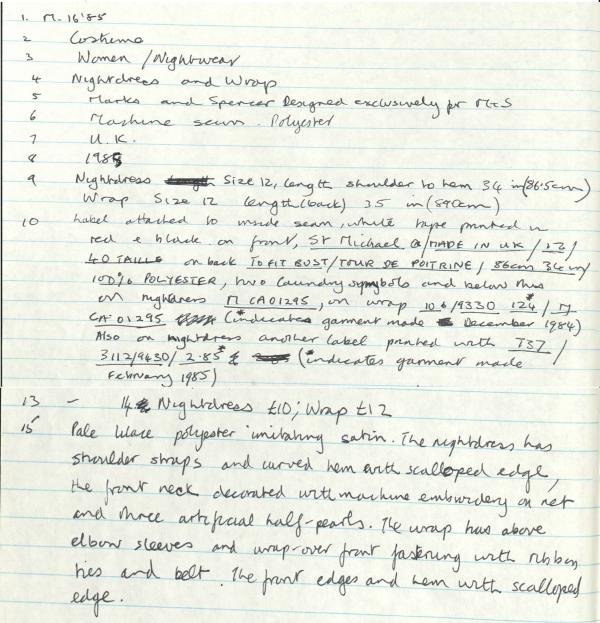 1. M. 16'85
2 Costume
3 Women / Nightwear
4 Nightdress and Wrap
5 Marks and Spencer Designed exclusively for M+S
6 Machine sewn. Polyester
7 U.K.
8 1985
9 Nightdress Size 12, length shoulder to hem 34 in (86.5cm)
Wrap Size 12 length (back) 35 in (89.0cm)
10 Label attached to inside seam, white tape printed in
red & black on front, St Michael ®/MADE IN UK / 12 /
40 TAILLE on back TO FIT BUST/TOUR DE POITRINE / 86cm 34in/
100% POLYESTER, two laundry symbols and below this
on nightdress M CA01295, on wrap 106/9330 124* / M
CA 01295 (*indicates garment made December 1984)
Also on nightdress another label printed with T37 /
3112/9430/ 2.85* (*indicates garment made
February 1985)
13 - 14 Nightdress £10; Wrap £12
15 Pale lilac polyester imitating satin. The nightdress has
shoulder straps and curved hem with scalloped edge,
the front neck decorated with machine embroidery on net
and three artificial half-pearls. The wrap has above
elbow sleeves and wrap-over front fastening with ribbon
ties and belt. The front edges and hem with scalloped
edge.